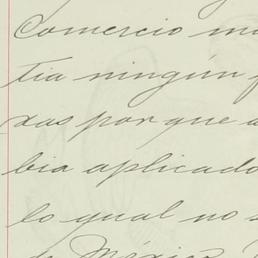 Comercio m
tia ningún
xas por que a
bia aplicado
lo qual no s
de México